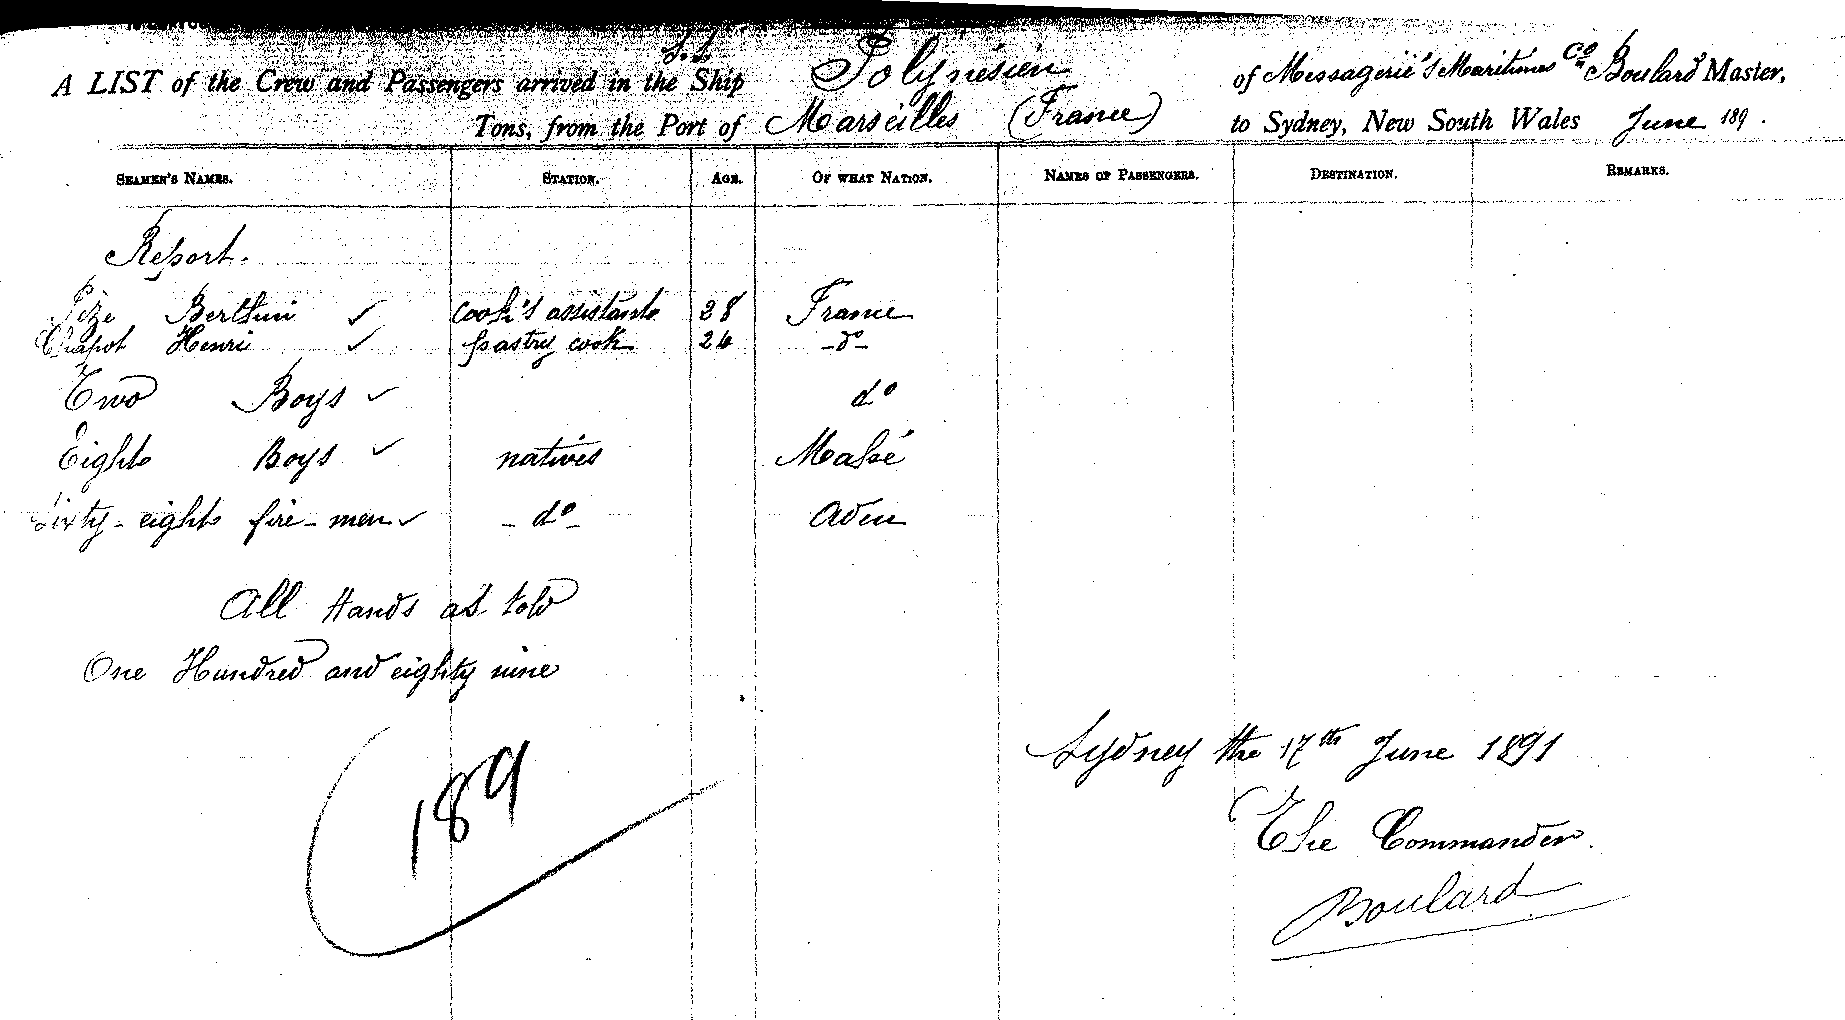 A LIST of the Crew and Passengers arrived in the Ship S.S. Polynésien of Messagerie's Maritimes Co Boulard Master,
Tons, from the Port of Marseilles (France) to Sydney, New South Wales June 189 .
SEAMEN'S NAMES. STATION. AGE. OF WHAT NATION. NAMES OF PASSENGERS. DESTINATION. REMARKS.
Report.
Pize Berthin ✓ cook's assistant 28 France
Chapot Henri ✓ pastry cook 26 -do-
Two Boys ✓ do
Eight Boys ✓ natives Mahé
Sixty-eight fire-men ✓ -do- Aden
All Hands as told
One Hundred and eighty nine
189
Sydney the 17th June 1891
The Commander.
Boulard